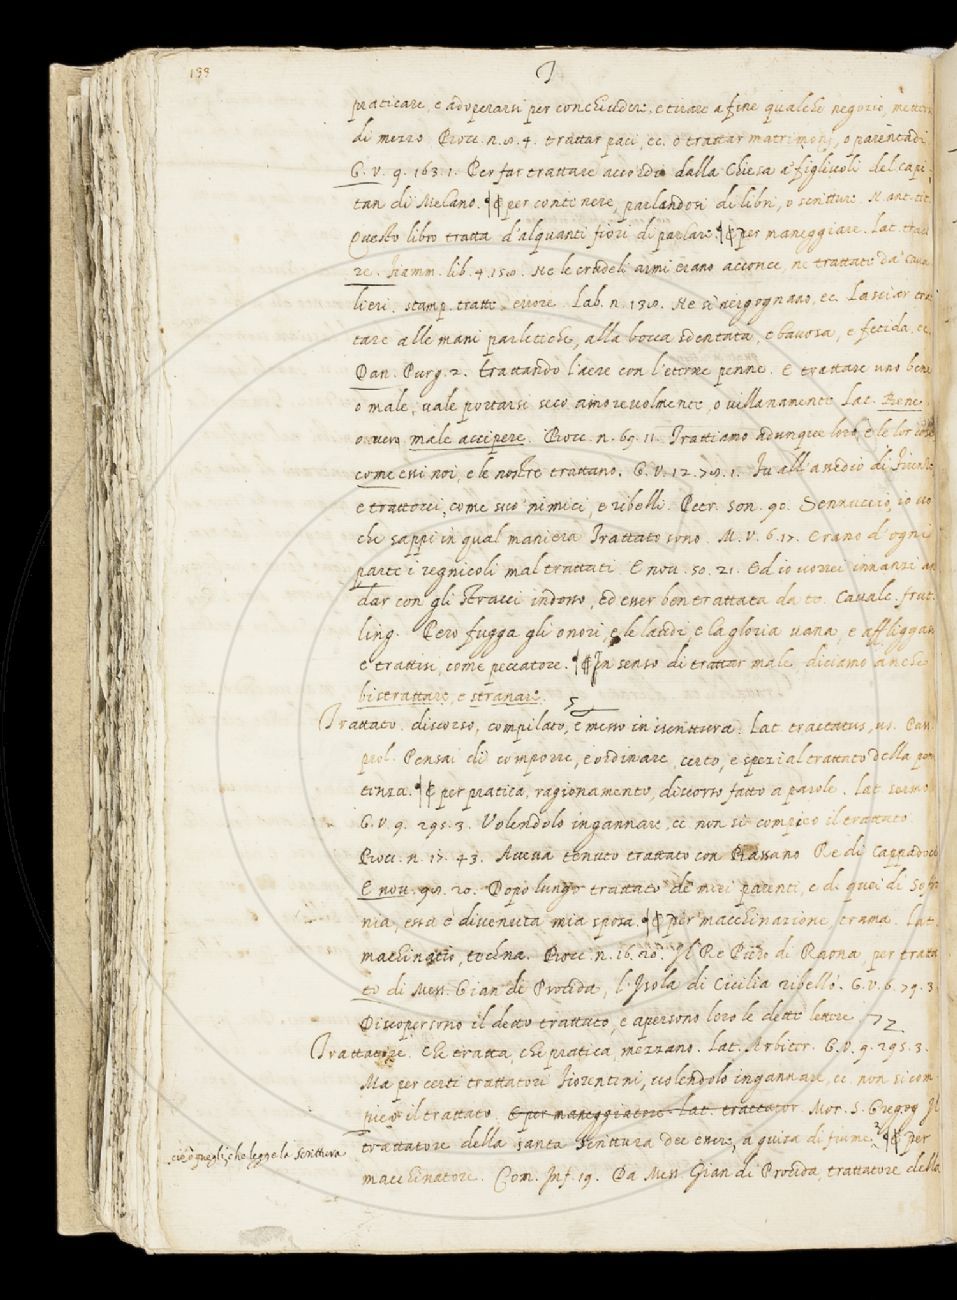 133
T
praticare, e adoperarsi per conchiudere, e tirare a fine qualche negozio,
di mezzo Bocc. n. 8. 4. trattar paci, ec. o trattar matrimonj, o parentadi
G. V. 9. 163. 1. Per far trattare accordo dalla Chiesa a' figliuoli del capi-
tan di Melano. ¶ per contenere, parlandosi di libri, o scritture. N. ant. tit.
Questo libro tratta d'alquanti fiori di parlare. ¶ per maneggiare. Lat. tracta
re. Fiamm. lib. 4. 158. Ne le crudeli armi erano acconce, ne trattate da' cava
lieri. stamp. tratte, errore. Lab. n. 138. Ne si vergognano, ec. Lasciar trat
tare alle mani parletiche, alla bocca sdentata, e bavosa, e fetida, ec.
Dan. Purg. 2. trattando l'aere con l'eterne penne. E trattare uno bene
o male, vale portarsi seco amorevolmente, o villanamente Lat. Bene
o vero male accipere. Bocc. n. 69. 11. Trattiamo adunque loro, e le lor cose
come essi noi, e le nostre trattano. G. V. 12. 78. 1. Fu all'assedio di Firenze
e trattocci, come suo' nimici, e ribelli. Petr. son. 90. Sennuccio, io vo
che sappi in qual maniera Trattato sono. M. V. 6. 17. Erano d'ogni
parte i regnicoli mal trattati E nov. 50. 21. Ed io vorrei innanzi an
dar con gli stracci indosso, ed esser ben trattata da te. Cavalc. frut.
ling. Però fugga gli onori, e le laudi e la gloria vana, e affliggasi
e trattisi, come peccatore. ¶ In senso di trattar male, diciamo anche
bistrattare, e stranare.
Trattato. discorso, compilato, e messo in iscrittura. Lat. tractatus, us. Pass.
prol. Pensai di comporre, e ordinare, certo, e spezial trattato della peni
tenza. ¶ per pratica, ragionamento, discorso fatto a parole. Lat. sermo
G. V. 9. 295. 3. Volendolo ingannare, ec non si compieo il trattato.
Bocc. n. 17. 43. Aveva tenuto trattato con Bassano Re di Cappadoci
E nov. 98. 20. Dopo lungo trattato de' miei parenti, e di quei di Sofro
nia, essa è divenuta mia sposa. ¶ per macchinazione, trama. Lat.
machinatio, techna. Bocc. n. 16. 20. Il Re Piero di Raona, per tratta
to di Mess. Gian di Procida, l'Isola di Cicilia ribellò. G. V. 6. 79. 3.
Discopersono il detto trattato, e apersono loro le dette lettere
Trattatore. Che tratta, che pratica, mezzano. Lat. Arbiter. G. V. 9. 295. 3.
Ma per certi trattatori Fiorentini, volendolo ingannare, ec non si com-
pieo il trattato. E per maneggiatore. Lat. trattator. Mor. S. Gregor Il
trattatore della santa Scrittura dee essere, a guisa di fiume, ¶ per
cioè quegli, che legge la scrittura
macchinatore. Com. Inf. 19. Da Mess. Gian di Procida, trattatore della